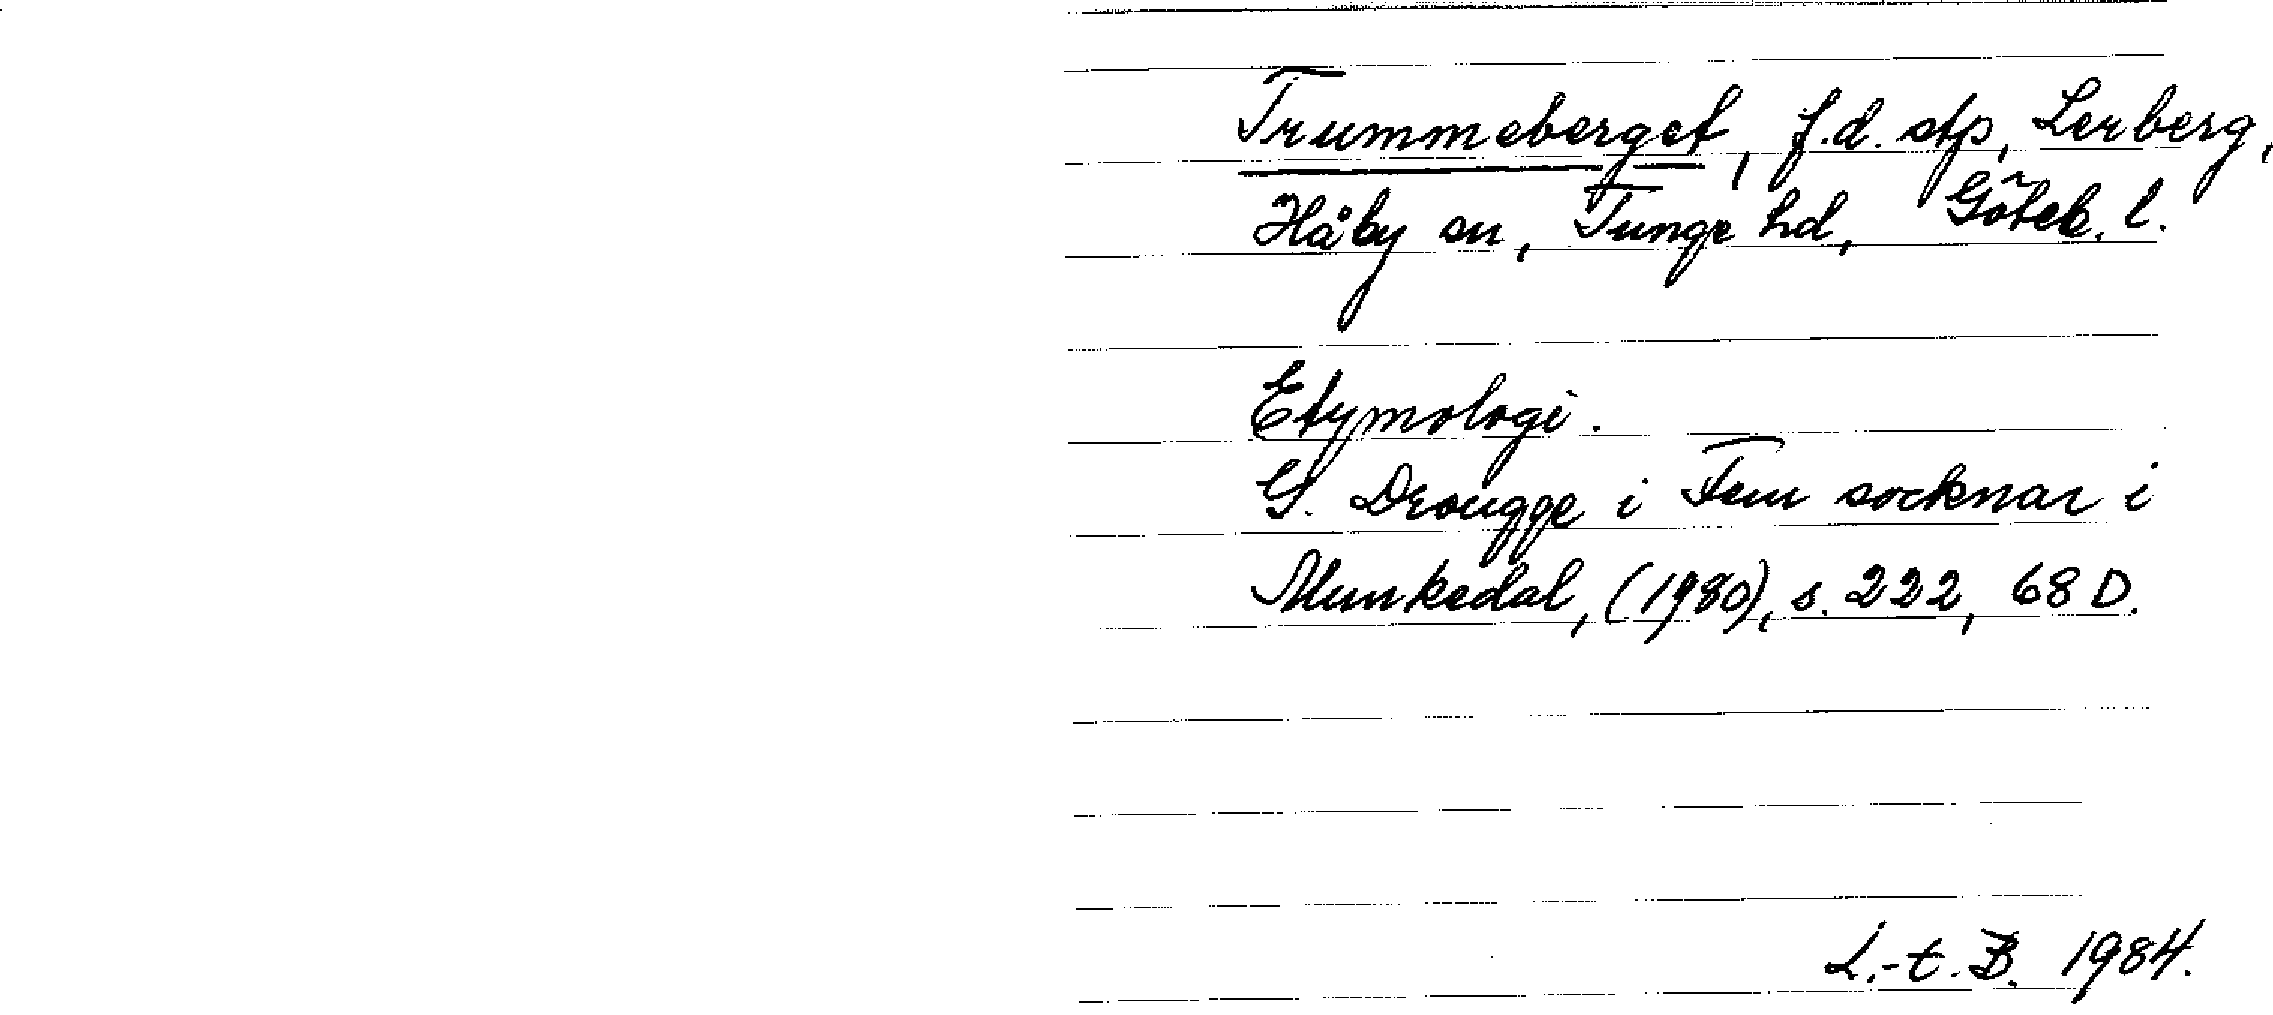 Trummeberget, f.d. stp, Lerberg,
Håby sn, Tunge hd, Göteb. l.
Etymologi.
G. Drougge i Fem socknar i
Munkedal, (1980), s. 222, 68 D.
L.-t. B. 1984.